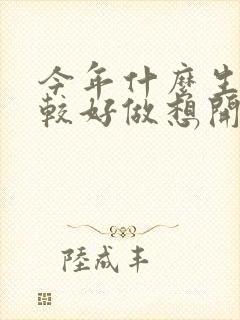 今年什麼生
較好做想開
陸成丰